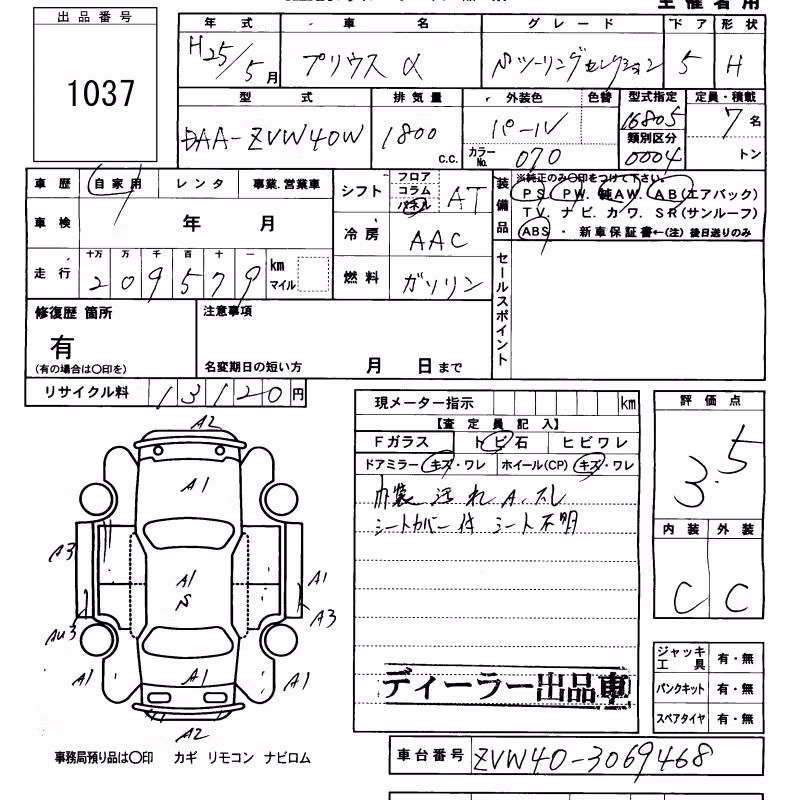 主催者用
出品番号
1037
年式 車名 グレード ドア 形状
H25/5月 プリウスα Sツーリングセレクション 5 H
型式 排気量 外装色 色替 型式指定 定員・積載
DAA-ZVW40W 1800 c.c. パール 16805 7名
カラーNo. 070 類別区分 0004 トン
車歴 自家用 レンタ 事業.営業車
シフト フロア コラム パネル AT
装備品 ※純正のみ○印をつけて下さい.
PS. PW. 純AW. AB(エアバック)
TV. ナビ. カワ. SR(サンルーフ)
ABS ・ 新車保証書←(注) 後日送りのみ
車検 年 月
冷房 AAC
走行 十万 万 千 百 十 一
209579 km マイル
燃料 ガソリン
セールスポイント
修復歴 箇所
有
(有の場合は○印を)
注意事項
名変期日の短い方 月 日まで
リサイクル料 13120円
現メーター指示 km
【査定員記入】
Fガラス トビ石 ヒビワレ
ドアミラー キズ・ワレ ホイール(CP) キズ・ワレ
内装 汚れ A.スレ
シートカバー付 シート不明
ディーラー出品車
評価点
3.5
内装 外装
C C
ジャッキ工具 有・無
パンクキット 有・無
スペアタイヤ 有・無
A2
A1
A3
A1
S
A1
A3
AU3
A1
A1
A1
A2
事務局預り品は○印 カギ リモコン ナビロム
車台番号 ZVW40-3069468